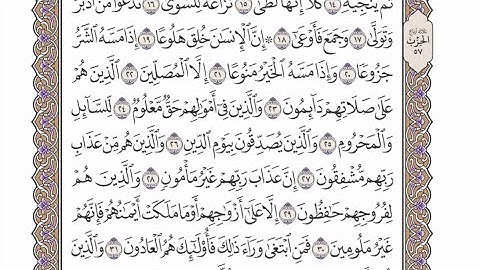 ثُمَّ يُنجِيهِ ١٤ كَلَّا إِنَّهَا لَظَىٰ ١٥ نَزَّاعَةً لِّلشَّوَىٰ ١٦ تَدْعُوا۟ مَنْ أَدْبَرَ
وَتَوَلَّىٰ ١٧ وَجَمَعَ فَأَوْعَىٰٓ ١٨ ۞ إِنَّ ٱلْإِنسَـٰنَ خُلِقَ هَلُوعًا ١٩ إِذَا مَسَّهُ ٱلشَّرُّ
جَزُوعًا ٢٠ وَإِذَا مَسَّهُ ٱلْخَيْرُ مَنُوعًا ٢١ إِلَّا ٱلْمُصَلِّينَ ٢٢ ٱلَّذِينَ هُمْ
عَلَىٰ صَلَاتِهِمْ دَآئِمُونَ ٢٣ وَٱلَّذِينَ فِىٓ أَمْوَٰلِهِمْ حَقٌّ مَّعْلُومٌ ٢٤ لِّلسَّآئِلِ
وَٱلْمَحْرُومِ ٢٥ وَٱلَّذِينَ يُصَدِّقُونَ بِيَوْمِ ٱلدِّينِ ٢٦ وَٱلَّذِينَ هُم مِّنْ عَذَابِ
رَبِّهِم مُّشْفِقُونَ ٢٧ إِنَّ عَذَابَ رَبِّهِمْ غَيْرُ مَأْمُونٍ ٢٨ وَٱلَّذِينَ هُمْ
لِفُرُوجِهِمْ حَـٰفِظُونَ ٢٩ إِلَّا عَلَىٰٓ أَزْوَٰجِهِمْ أَوْ مَا مَلَكَتْ أَيْمَـٰنُهُمْ فَإِنَّهُمْ
غَيْرُ مَلُومِينَ ٣٠ فَمَنِ ٱبْتَغَىٰ وَرَآءَ ذَٰلِكَ فَأُو۟لَـٰٓئِكَ هُمُ ٱلْعَادُونَ ٣١ وَٱلَّذِينَ
الحزب
٥٧